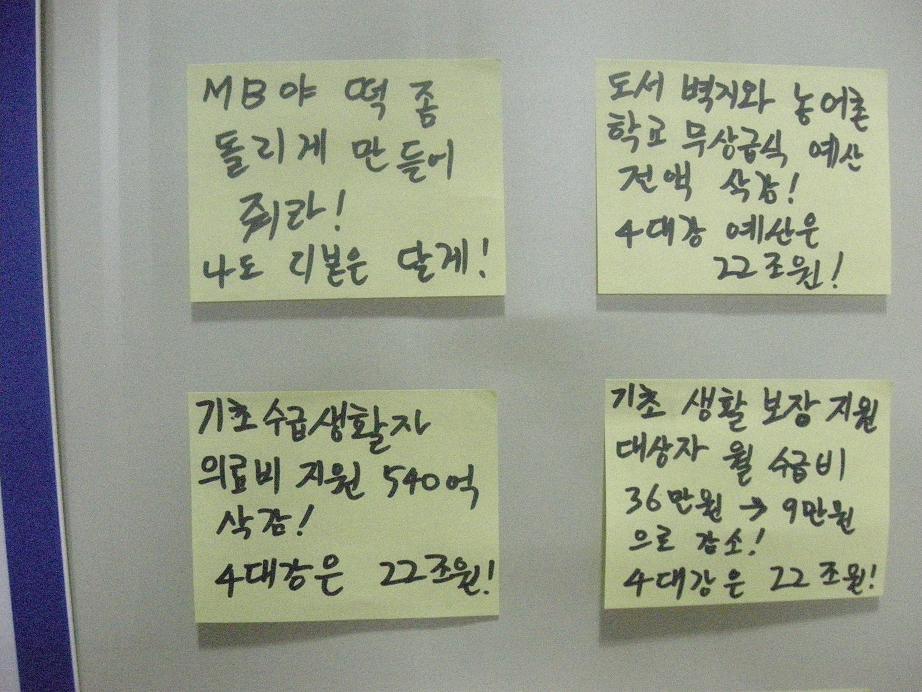 MB야 떡 좀
돌리게 만들어
줘라!
나도 리본은 달게!
도서 벽지와 농어촌
학교 무상급식 예산
전액 삭감!
4대강 예산은
22조원!
기초수급생활자
의료비 지원 540억
삭감!
4대강은 22조원!
기초 생활 보장 지원
대상자 월 수급비
36만원 → 9만원
으로 감소!
4대강은 22조원!